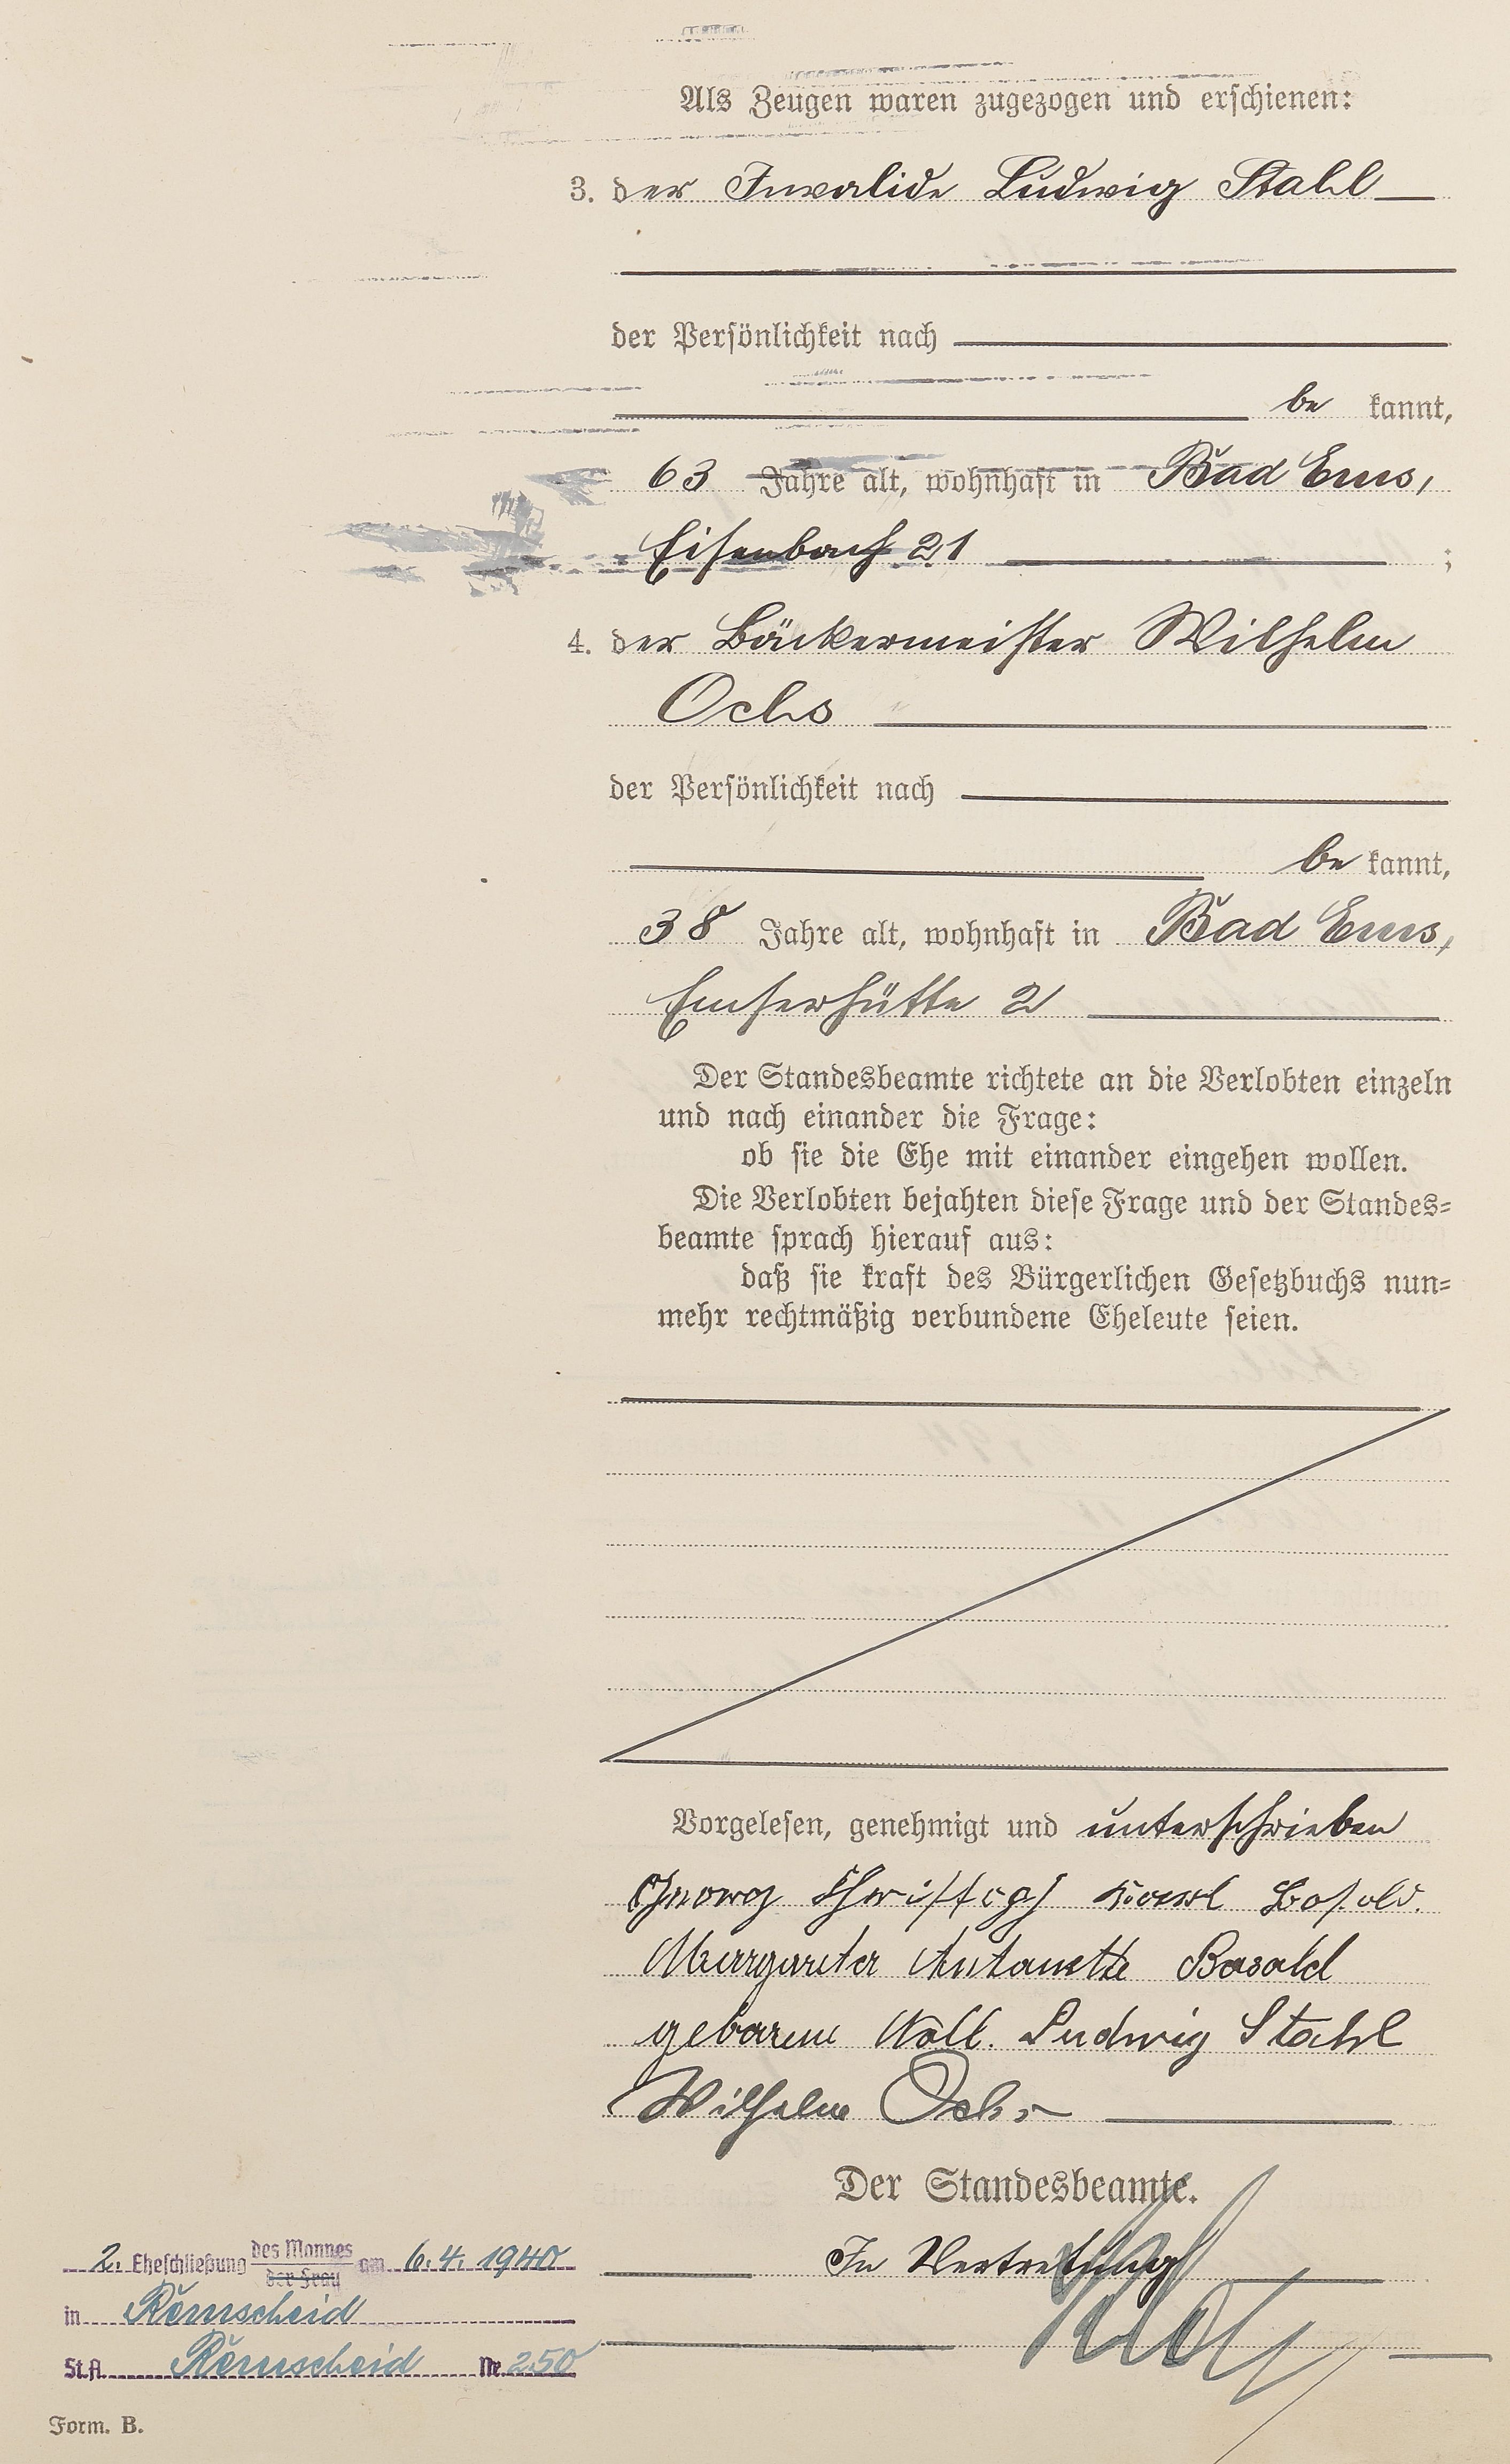 Als Zeugen waren zugezogen und erschienen:
3. der Invalide Ludwig Stahl
der Persönlichkeit nach
be kannt,
63 Jahre alt, wohnhaft in Bad Ems,
Eisenbach 21 ;
4. der Bäckermeister Wilhelm
Ochs
der Persönlichkeit nach
be kannt,
38 Jahre alt, wohnhaft in Bad Ems,
Emserhütte 2
Der Standesbeamte richtete an die Verlobten einzeln
und nach einander die Frage:
ob sie die Ehe mit einander eingehen wollen.
Die Verlobten bejahten diese Frage und der Standes=
beamte sprach hierauf aus:
daß sie kraft des Bürgerlichen Gesetzbuchs nun=
mehr rechtmäßig verbundene Eheleute seien.
Vorgelesen, genehmigt und unterschrieben
Georg Karl
Margareta Antonette Basald
geborene Noll. Ludwig Stahl
Wilhelm Ochs
Der Standesbeamte.
In Vertretung
2. Eheschließung des Mannes der Frau am 6.4.1940
in Remscheid
St.A. Remscheid Nr. 250
Form. B.